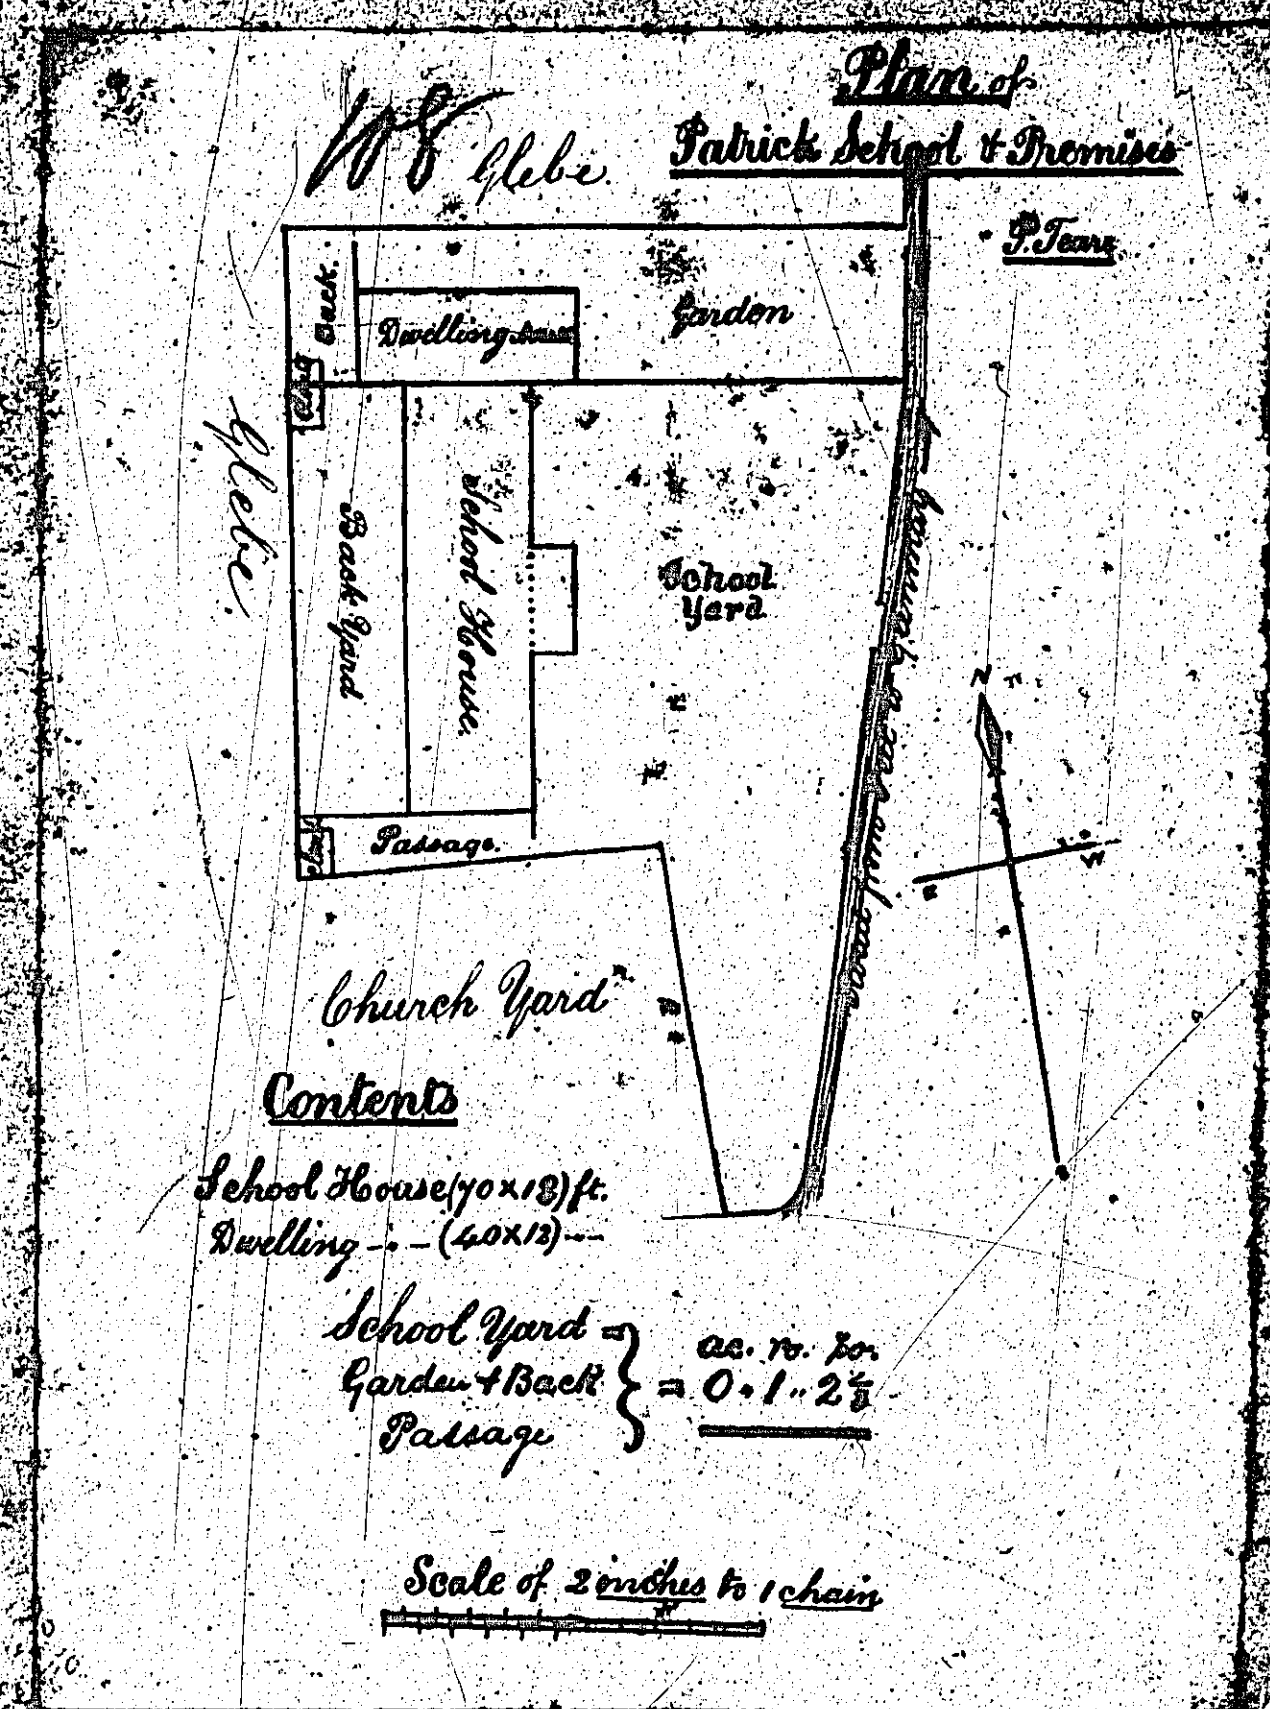 Plan of
Patrick School & Premises
Glebe.
P. Teare
Back.
Dwelling
Garden
Glebe.
Back Yard
School House.
School
Yard
N
W
E
Passage.
Church Yard
Contents
School House (70 x 18) ft.
Dwelling - " - (40 x 12) ---
School Yard =
Garden & Back
Passage
ac. ro. po.
= 0 . 1 .. 2
Scale of 2 inches to 1 chain